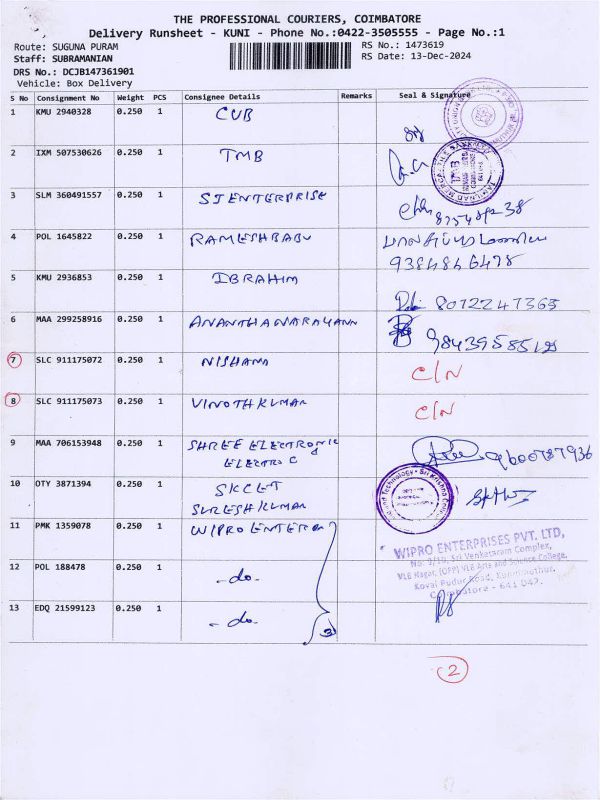 THE PROFESSIONAL COURIERS, COIMBATORE
Delivery Runsheet - KUNI - Phone No.:0422-3505555 - Page No.:1
Route: SUGUNA PURAM RS No.: 1473619
Staff: SUBRAMANIAN RS Date: 13-Dec-2024
DRS No.: DCJB147361901
Vehicle: Box Delivery
S No Consignment No Weight PCS Consignee Details Remarks Seal & Signature
1 KMU 2940328 0.250 1 CUB
2 IXM 507530626 0.250 1 TMB
3 SLM 360491557 0.250 1 SJ ENTERPRISE
4 POL 1645822 0.250 1 RAMESHBABU
9384846478
5 KMU 2936853 0.250 1 IBRAHIM 8072247365
6 MAA 299258916 0.250 1 ANANTHANARAYANN
7 SLC 911175072 0.250 1 NISHANA C/N
8 SLC 911175073 0.250 1 VINOTHKUMAR C/N
9 MAA 706153948 0.250 1 SHREE ELECTRONIC
ELECTRO C 9600787936
10 OTY 3871394 0.250 1 SKCET
SURESHKUMAR
11 PMK 1359078 0.250 1 WIPRO ENTER
WIPRO ENTERPRISES PVT. LTD,
No: 3/10, Sri Venketaram Complex,
VLB Nagar, (OPP) VLB Arts and Science College,
Kovai Pudur Road, Kuniamuthur,
Coimbatore - 641 042.
12 POL 188478 0.250 1 -do-
13 EDQ 21599123 0.250 1 -do- 3
2